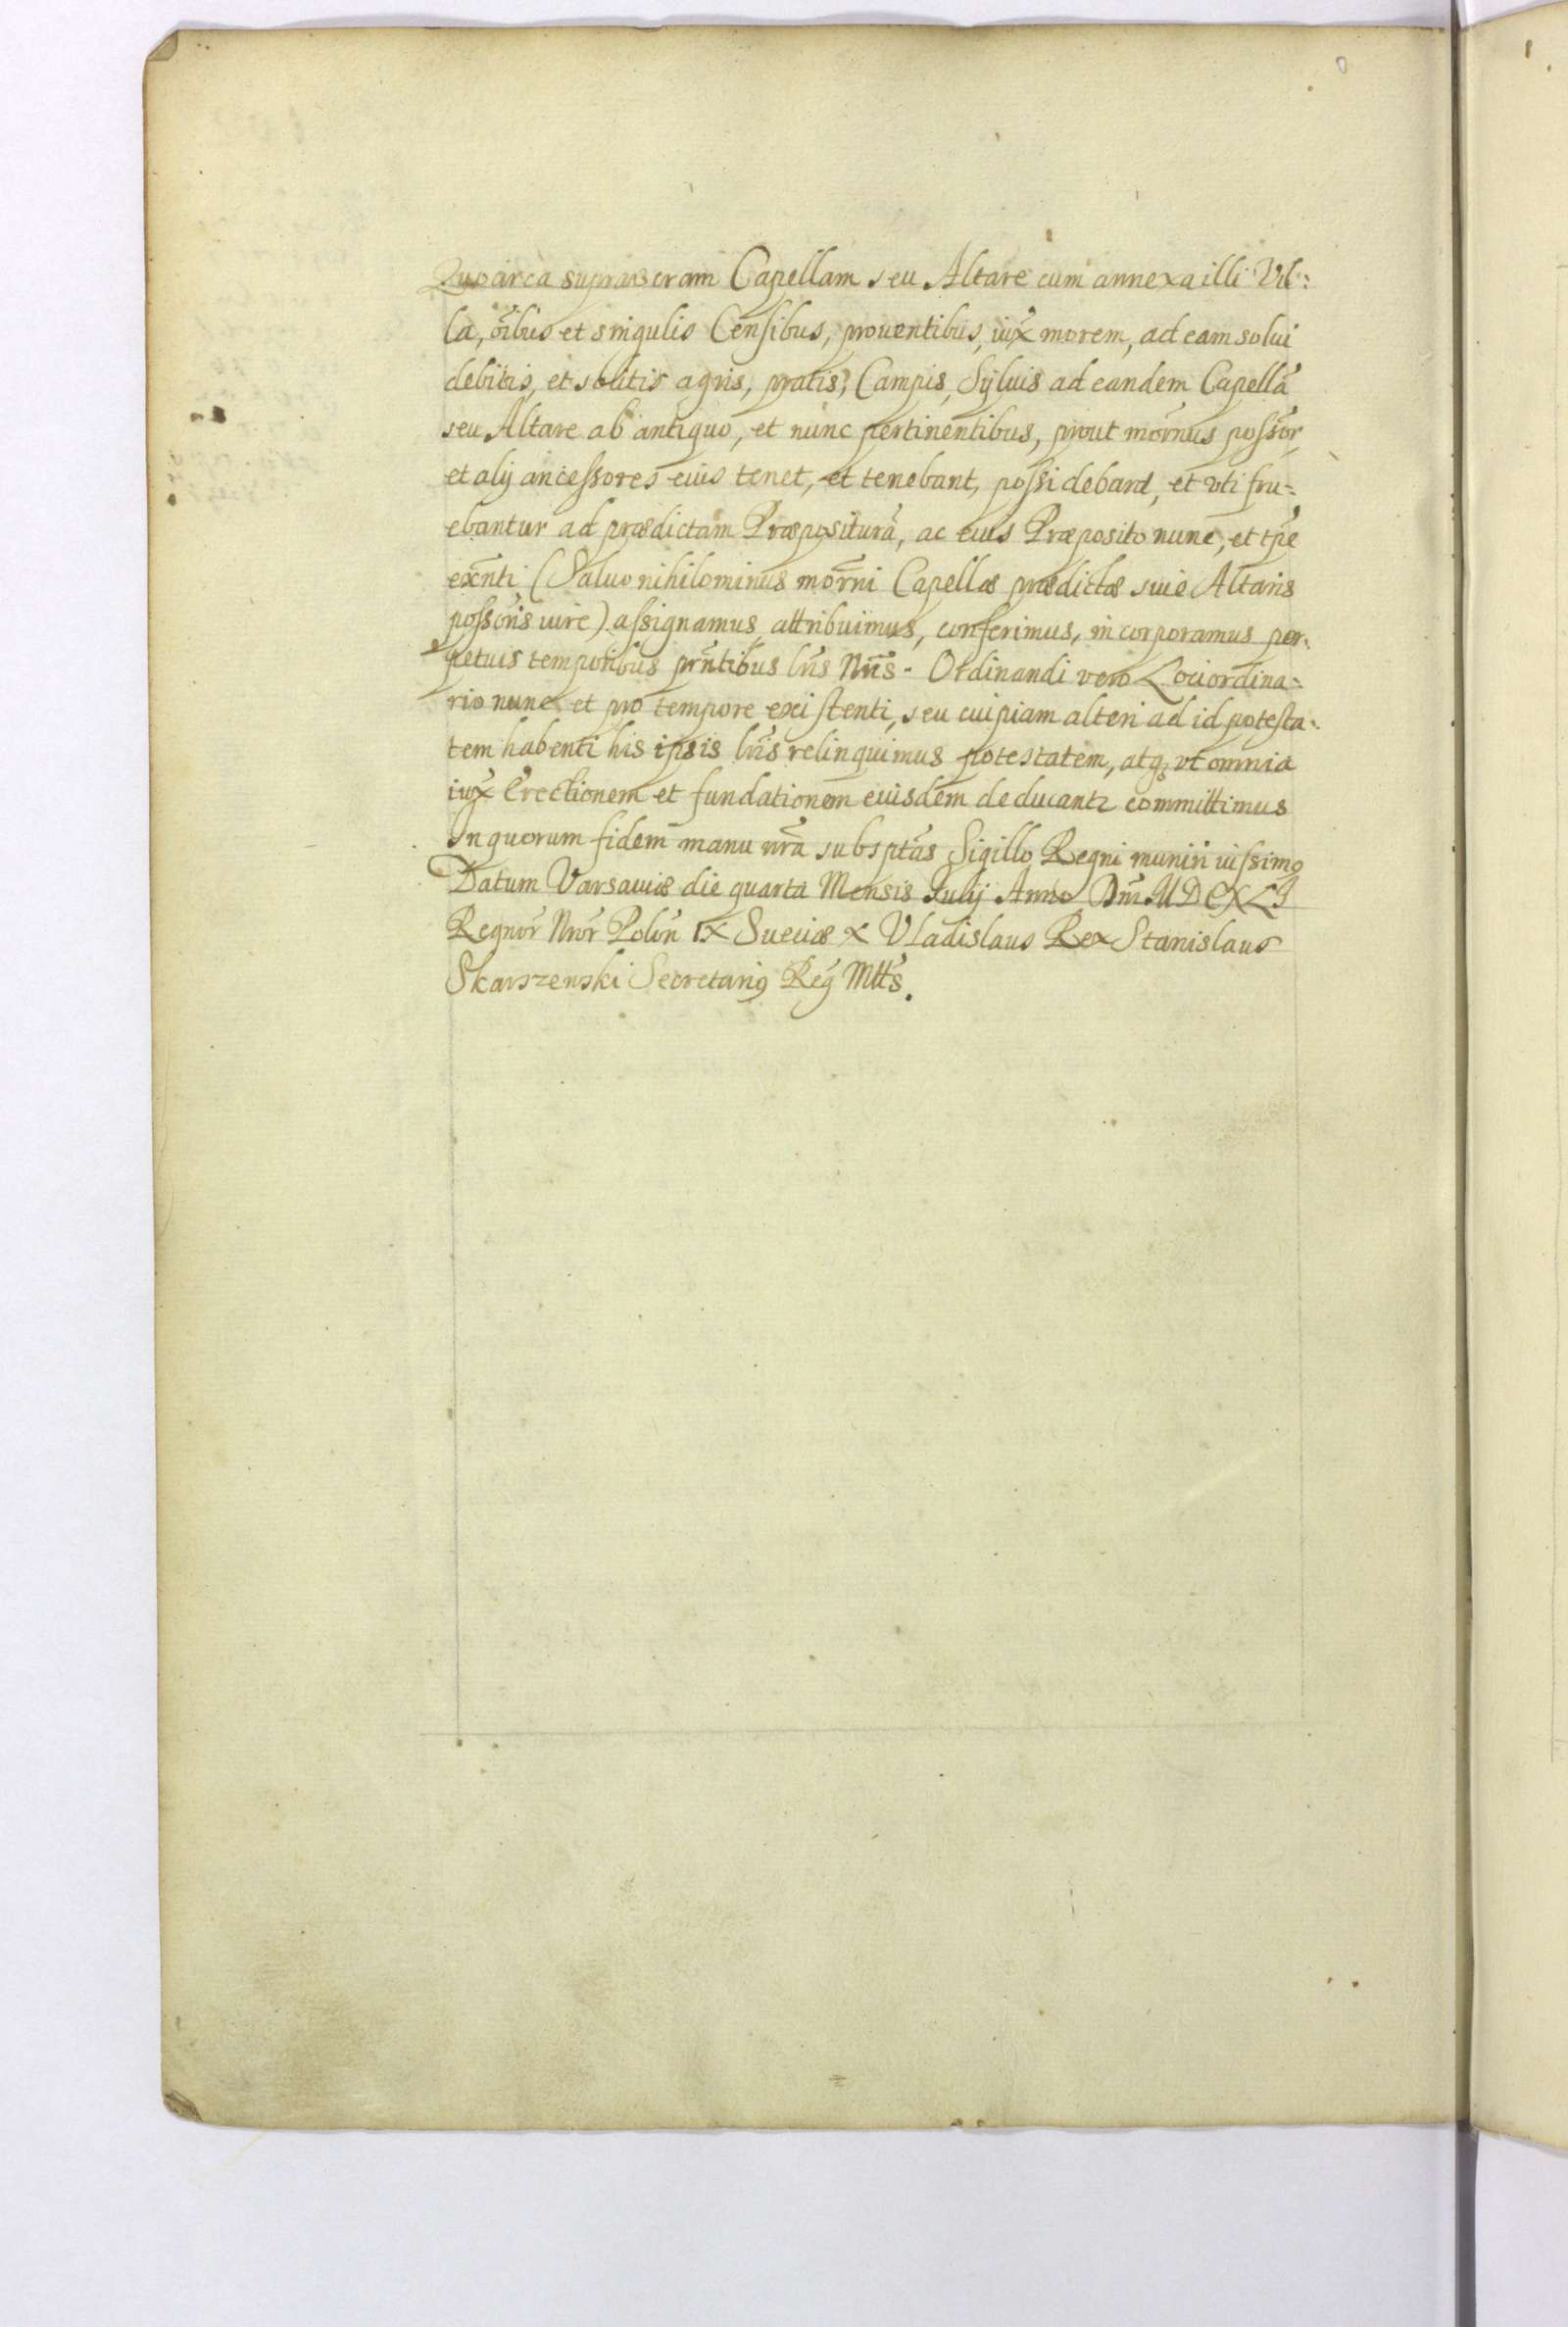 Quocirca suprascram Capellam seu Altare cum annexa illi Vil:
la, oībus et singulis Censibus, prouentibus, iux̃ morem, ad eam solui
debitis, et solitis agris, pratis, Campis, Syluis ad eandem Capellā
seu Altare ab antiquo, et nunc pertinentibus, prout mōrnus possōr,
et alij ancessores eius tenet, et tenebant, possidebant, et vti fru-
ebantur ad prædictam Præpositurā, ac eius Præposito nunc, et tp̄e
exn̄ti, (Saluo nihilominus mōrni Capellæ prædictæ siue Altaris
possōris iure) assignamus, attribuimus, conferimus, incorporamus per-
petuis temporibus prn̄tibus lrīs Nrīs. Ordinandi vero Loci ordina:
rio nunc et pro tempore existenti, seu cuipiam alteri ad id potesta:
tem habenti his ipsis lrīs relinquimus potestatem, atq; vt omnia
iux̃ Erectionem et fundationem eiusdem deducantr committimus
In quorum fidem manu nrā subsptās Sigillo Regni muniri iussimꝰ
Datum Varsauiæ die quarta Mensis Iulij Anno Dnī MDCXLI
Regnōr Nrōr Polōn IX Sueciæ X Vladislaus Rex Stanislaus
Skarszewski Secretariꝰ Reg̃ Mttīs.